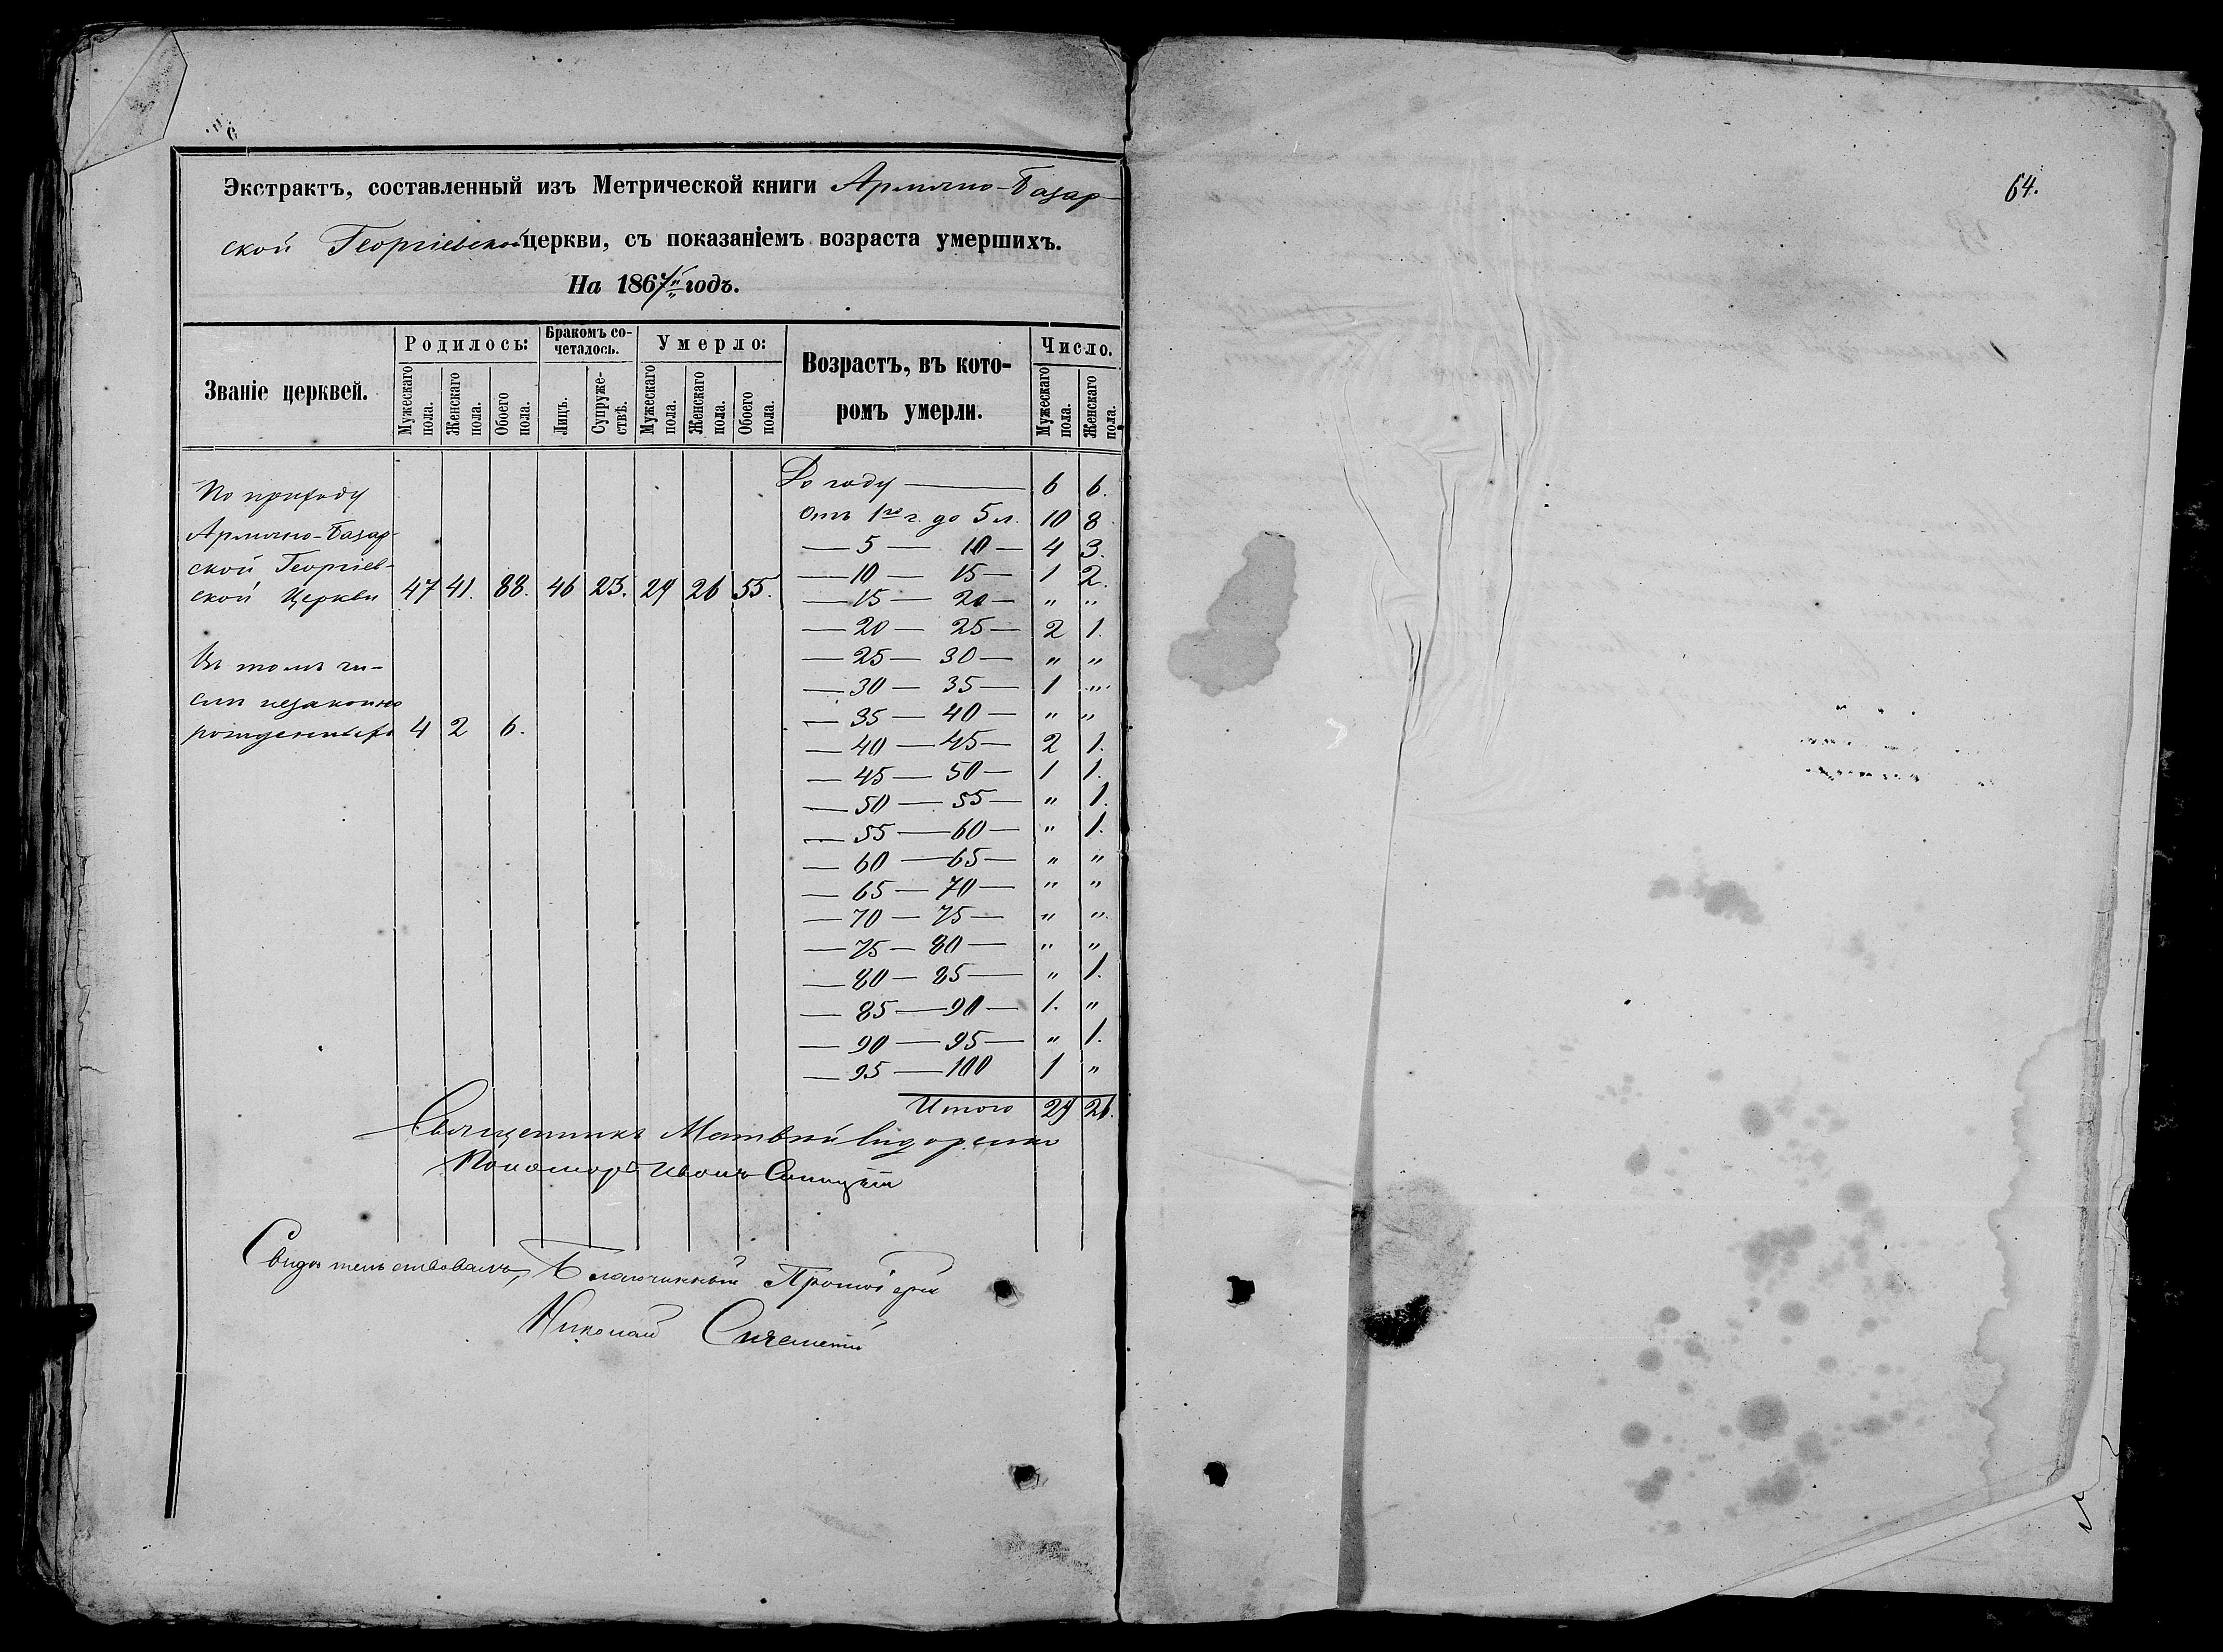 Экстрактъ, составленный изъ Метрической книги Армяно-Базар-
ской Георгіевской церкви, съ показаніемъ возраста умершихъ.
На 1867й годъ.
Званіе церквей. Родилось: Бракомъ со-четалось. Умерло: Возрастъ, въ кото-ромъ умерли. Число.
Мужескаго пола. Женскаго пола. Обоего пола. Лицъ. Супруже-ствъ. Мужескаго пола. Женскаго пола. Обоего пола. Мужескаго пола. Женскаго пола.
По приходу
Армяно-Базар-
ской Георгіев-
ской Церкви 47 41. 88. 46 23. 29 26 55.
Въ томъ чи-
слѣ незаконно
рожденныхъ 4 2 6.
До году — 6 6.
Отъ 1го г. до 5 л. 10 8
— 5 — 10 — 4 3.
— 10 — 15 — 1 2.
— 15 — 20 — " "
— 20 — 25 — 2 1.
— 25 — 30 — " "
— 30 — 35 — 1 "
— 35 — 40 — " "
— 40 — 45 — 2 1.
— 45 — 50 — 1 1.
— 50 — 55 — " 1.
— 55 — 60 — " 1.
— 60 — 65 — " "
— 65 — 70 — " "
— 70 — 75 — " "
— 75 — 80 — " "
— 80 — 85 — " 1.
— 85 — 90 — 1. "
— 90 — 95 — " 1.
— 95 — 100 1 "
Итого 29 26.
Священникъ Матвей Сидоренко
Пономарь Иванъ
Свидѣтельствовалъ, Благочинный Протоіерей
Николай
64.